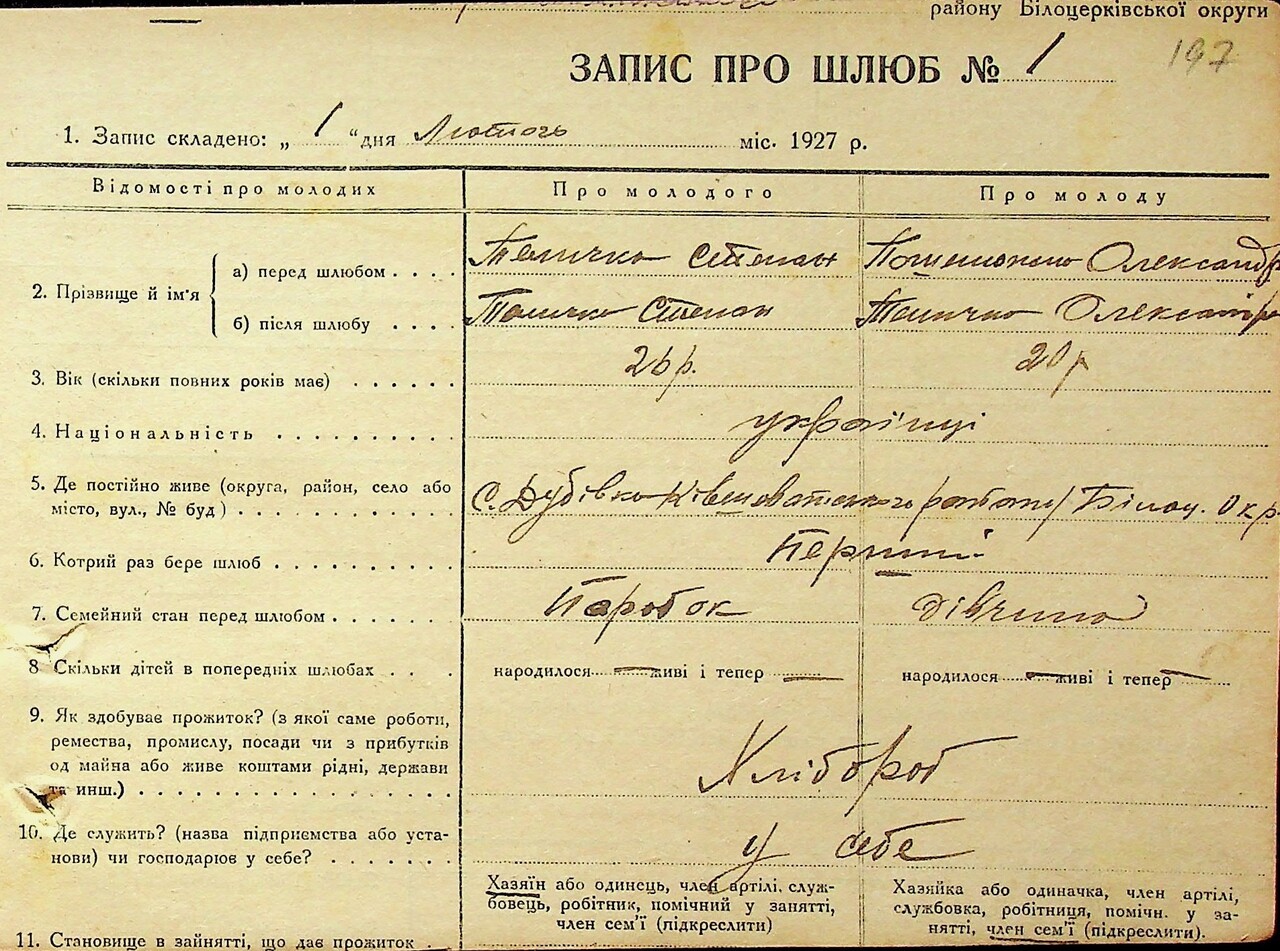 району Білоцерківської округи
ЗАПИС ПРО ШЛЮБ № 1
197
1. Запис складено: „ 1 “ дня Лютого міс. 1927 р.
Відомості про молодих
Про молодого
Про молоду
2. Прізвище й ім'я
а) перед шлюбом . . . .
Степан
Олександра
б) після шлюбу . . . .
Степан
Олександра
3. Вік (скільки повних років має) . . . . . .
26 р.
20 р
4. Національність . . . . . . . . . .
українці
5. Де постійно живе (округа, район, село або
місто, вул., № буд) . . . . . . . . . . .
С. Дубівка Ківшоватського району Білоц. Окр.
6. Котрий раз бере шлюб . . . . . . . . . .
Перший
7. Семейний стан перед шлюбом . . . . . . .
Паробок
дівчина
8 Скільки дітей в попередніх шлюбах . . .
народилося — живі і тепер —
народилося — живі і тепер —
9. Як здобуває прожиток? (з якої саме роботи,
ремества, промислу, посади чи з прибутків
од майна або живе коштами рідні, держави
та инш.) . . . . . . . . . . . . . . . . .
Хлібороб
10. Де служить? (назва підприємства або уста-
нови) чи господарює у себе? . . . . . . .
у себе
Хазяїн або одинець, член артілі, служ-
бовець, робітник, помічний у занятті,
член сем'ї (підкреслити)
Хазяйка або одиначка, член артілі,
службовка, робітниця, помічн. у за-
нятті, член сем'ї (підкреслити).
11. Становище в зайнятті, що дає прожиток .